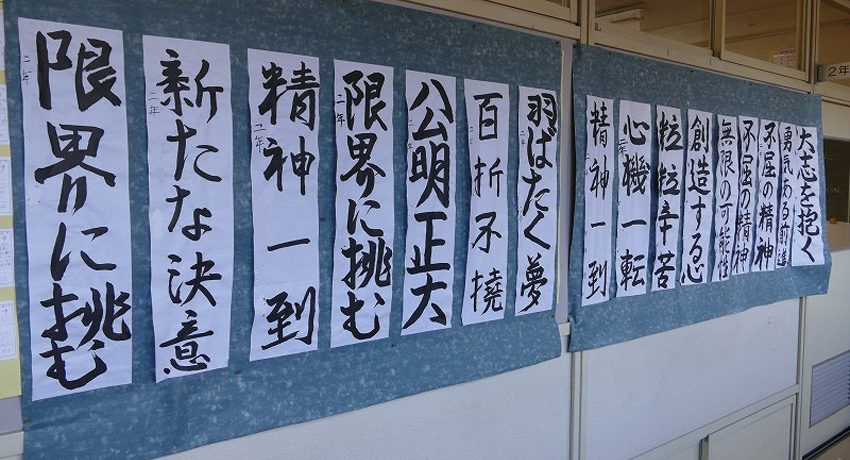 限界に挑む
二年
新たな決意
二年
精神一到
二年
限界に挑む
二年
公明正大
百折不撓
羽ばたく夢
精神一到
心機一転
粒粒辛苦
創造する心
無限の可能性
不屈の精神
不屈の精神
勇気ある前進
大志を抱く
2年